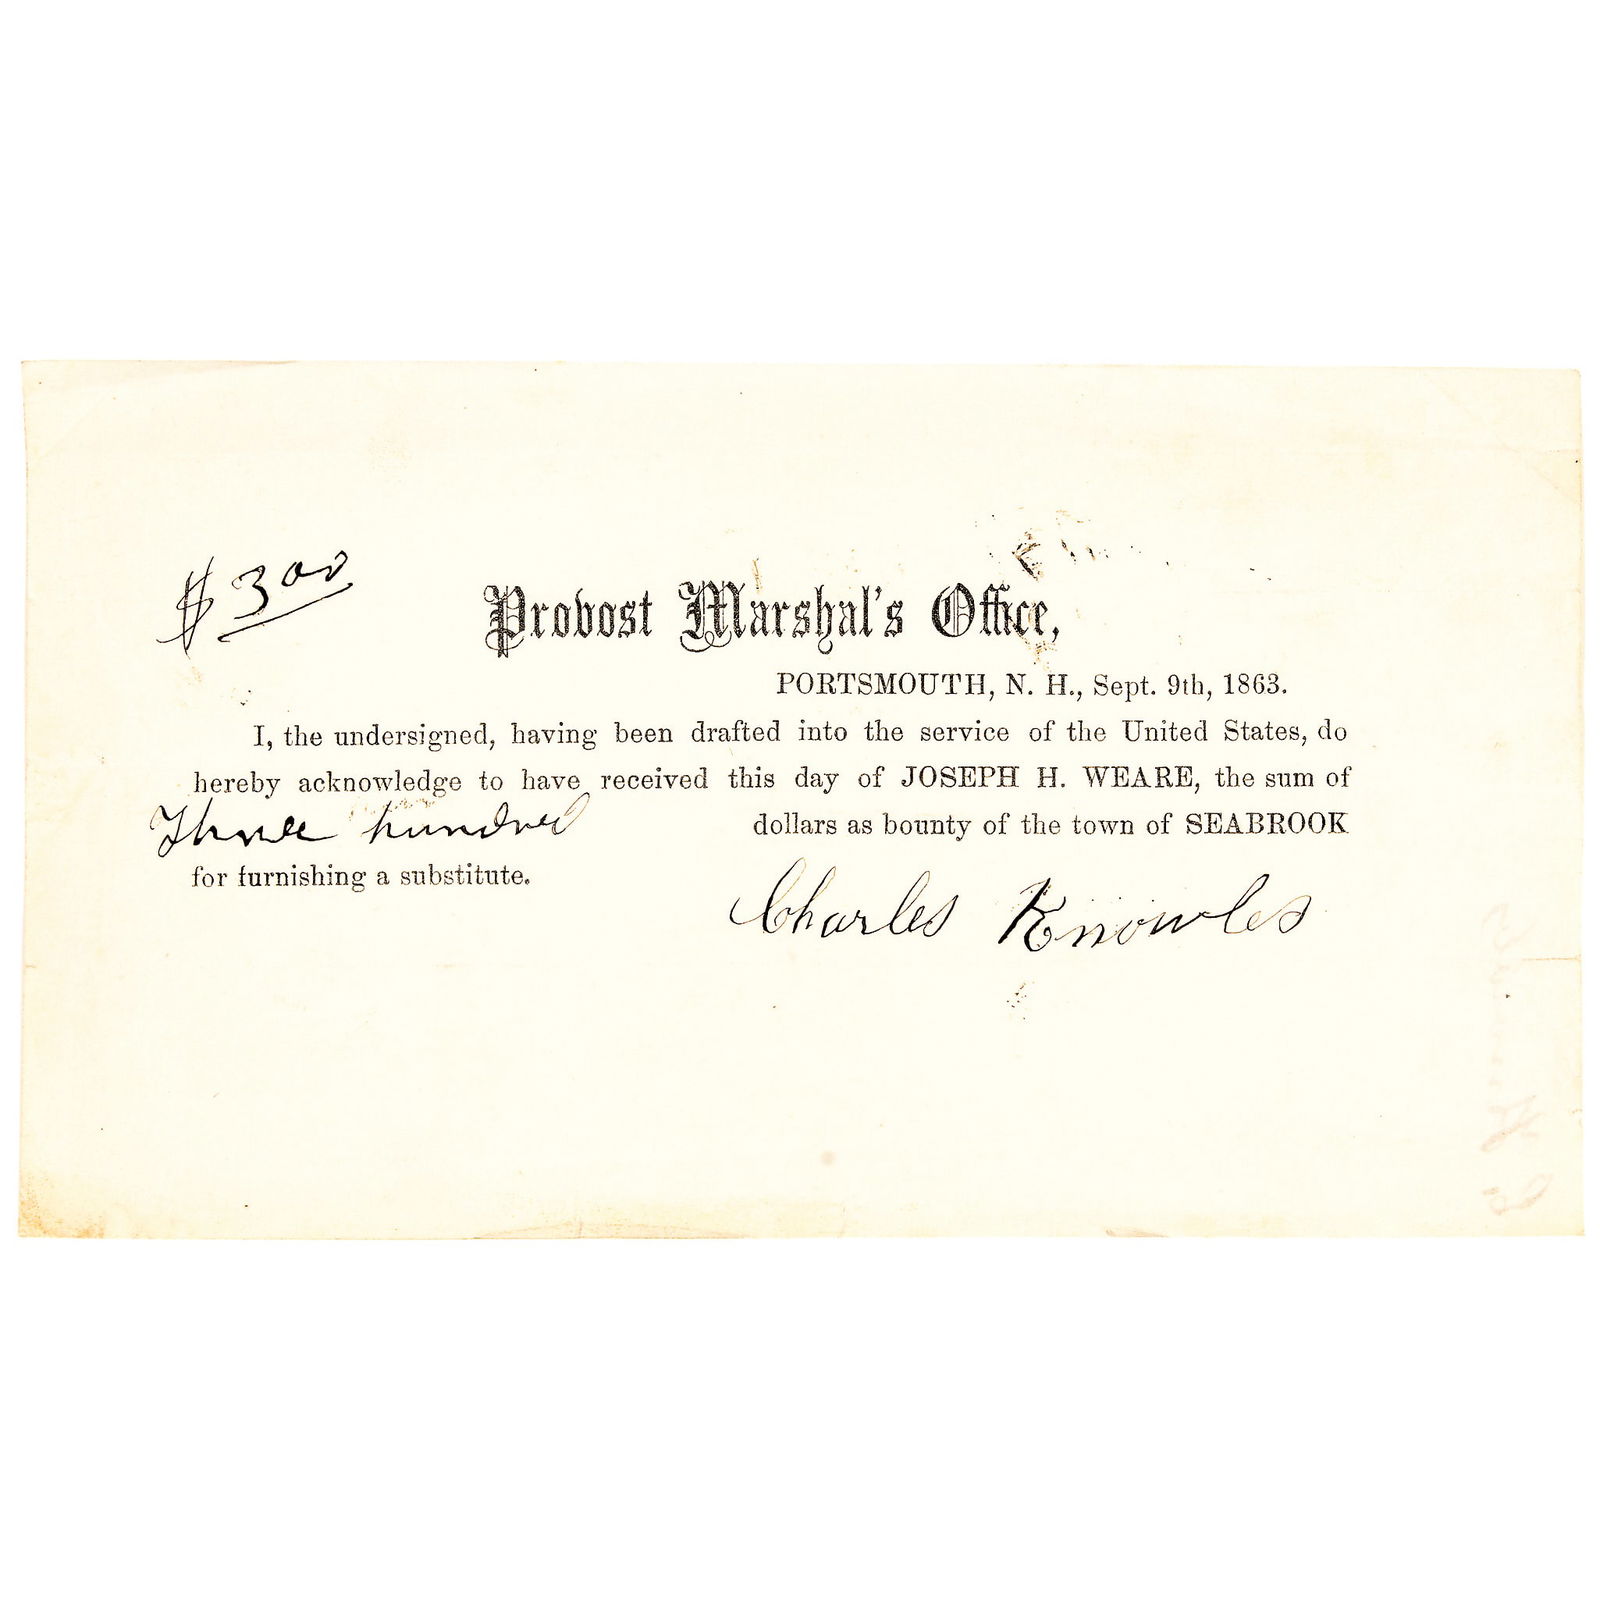 $ 300
Provost Marshal's Office,
PORTSMOUTH, N. H., Sept. 9th, 1863.
I, the undersigned, having been drafted into the service of the United States, do
hereby acknowledge to have received this day of JOSEPH H. WEARE, the sum of
Three hundred dollars as bounty of the town of SEABROOK
for furnishing a substitute.
Charles Knowles